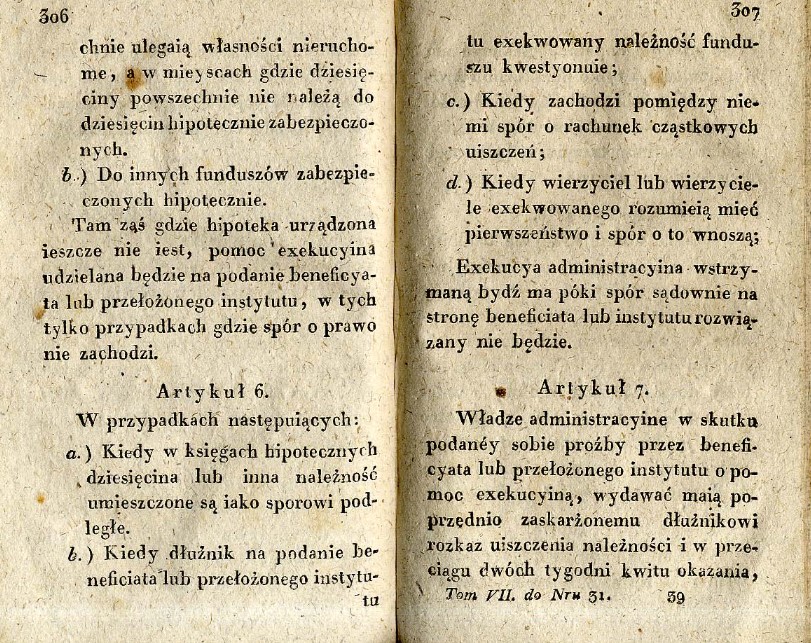 306
chnie ulegaią własności nierucho-
me, a w mieyscach gdzie dziesię-
ciny powszechnie nie należą do
dziesięcin hipotecznie zabezpieczo-
nych.
b.) Do innych funduszów zabezpie-
czonych hipotecznie.
Tam ząś gdzie hipoteka urządzona
ieszcze nie iest, pomoc exekucyina
udzielana będzie na podanie beneficya-
ta lub przełożonego instytutu, w tych
tylko przypadkach gdzie spór o prawo
nie zachodzi.
Artykuł 6.
W przypadkach następuiących:
a.) Kiedy w księgach hipotecznych
dziesięcina lub inna należność
umieszczone są iako sporowi pod-
ległe.
b.) Kiedy dłużnik na podanie be-
neficiata lub przełożonego instytu-
tu
307
tu exekwowany należność fundu-
szu kwestyonuie;
c.) Kiedy zachodzi pomiędzy nie-
mi spór o rachunek cząstkowych
uiszczeń;
d.) Kiedy wierzyciel lub wierzycie-
le exekwowanego rozumieią mieć
pierwszeństwo i spór o to wnoszą;
Exekucya administracyina wstrzy-
maną bydź ma póki spór sądownie na
stronę beneficiata lub instytutu rozwią-
zany nie będzie.
Artykuł 7.
Władze administracyine w skutku
podanéy sobie proźby przez benefi-
cyata lub przełożonego instytutu o po-
moc exekucyiną, wydawać maią po-
przędnio zaskarżonemu dłużnikowi
rozkaz uiszczenia należności i w prze-
ciągu dwóch tygodni kwitu okazania,
Tom VII. do Nru 31. 39